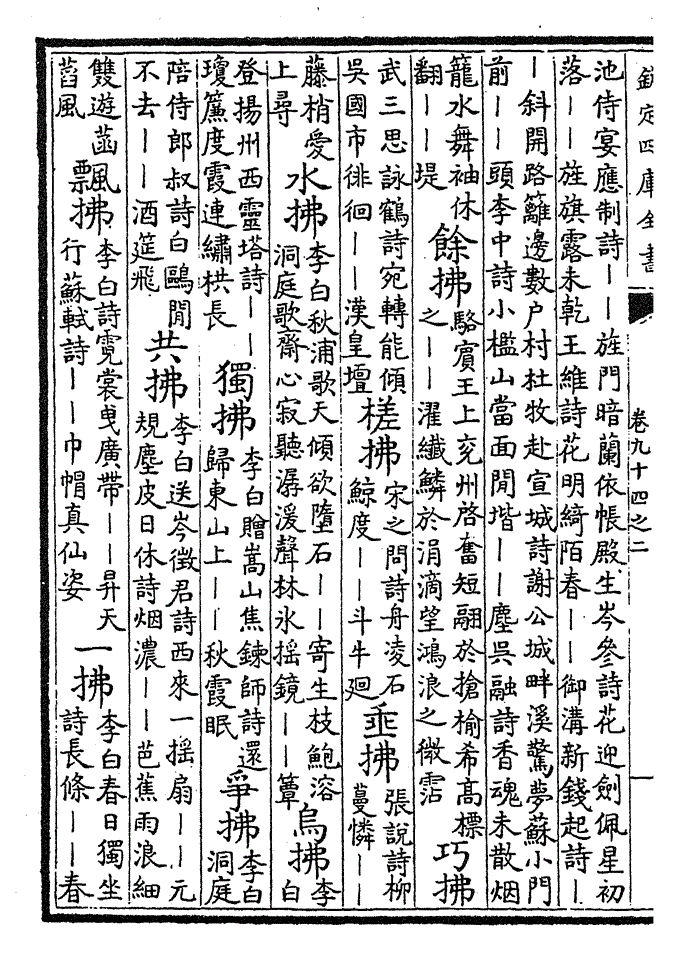 欽定四庫全書
卷九十四之二
池侍宴應制詩——旌門暗蘭依帳殿生岑參詩花迎劍佩星初
落——旌旗露未乾王維詩花明綺陌春——御溝新錢起詩—
—斜開路籬邊數户村杜牧赴宣城詩謝公城畔溪驚夢蘇小門
前——頭李中詩小檻山當面閒堦——塵吳融詩香魂未散烟
籠水舞袖休
翻——堤
餘拂
駱賓王上兖州啓奮短翮於搶榆希高標
之——濯纖鱗於涓滴望鴻浪之微霑
巧拂
武三思詠鶴詩宛轉能傾
吳國市徘徊——漢皇壇
槎拂
宋之問詩舟凌石
鯨度——斗牛廻
垂拂
張說詩柳
蔓憐——
藤梢愛
上尋
水拂
李白秋浦歌天傾欲墮石——寄生枝鮑溶
洞庭歌齋心寂聽潺湲聲林氷摇鏡——簟
烏拂
李
白
登揚州西靈塔詩——
瓊簾度霞連繡栱長
獨拂
李白贈嵩山焦鍊師詩還
歸東山上——秋霞眠
爭拂
李白
洞庭
陪侍郎叔詩白鷗閒
不去——酒筵飛
共拂
李白送岑徵君詩西來一摇扇——元
規塵皮日休詩烟濃——芭蕉雨浪細
雙遊菡
萏風
飄拂
李白詩霓裳曳廣帶——昇天
行蘇軾詩——巾帽真仙姿
一拂
李白春日獨坐
詩長條——春